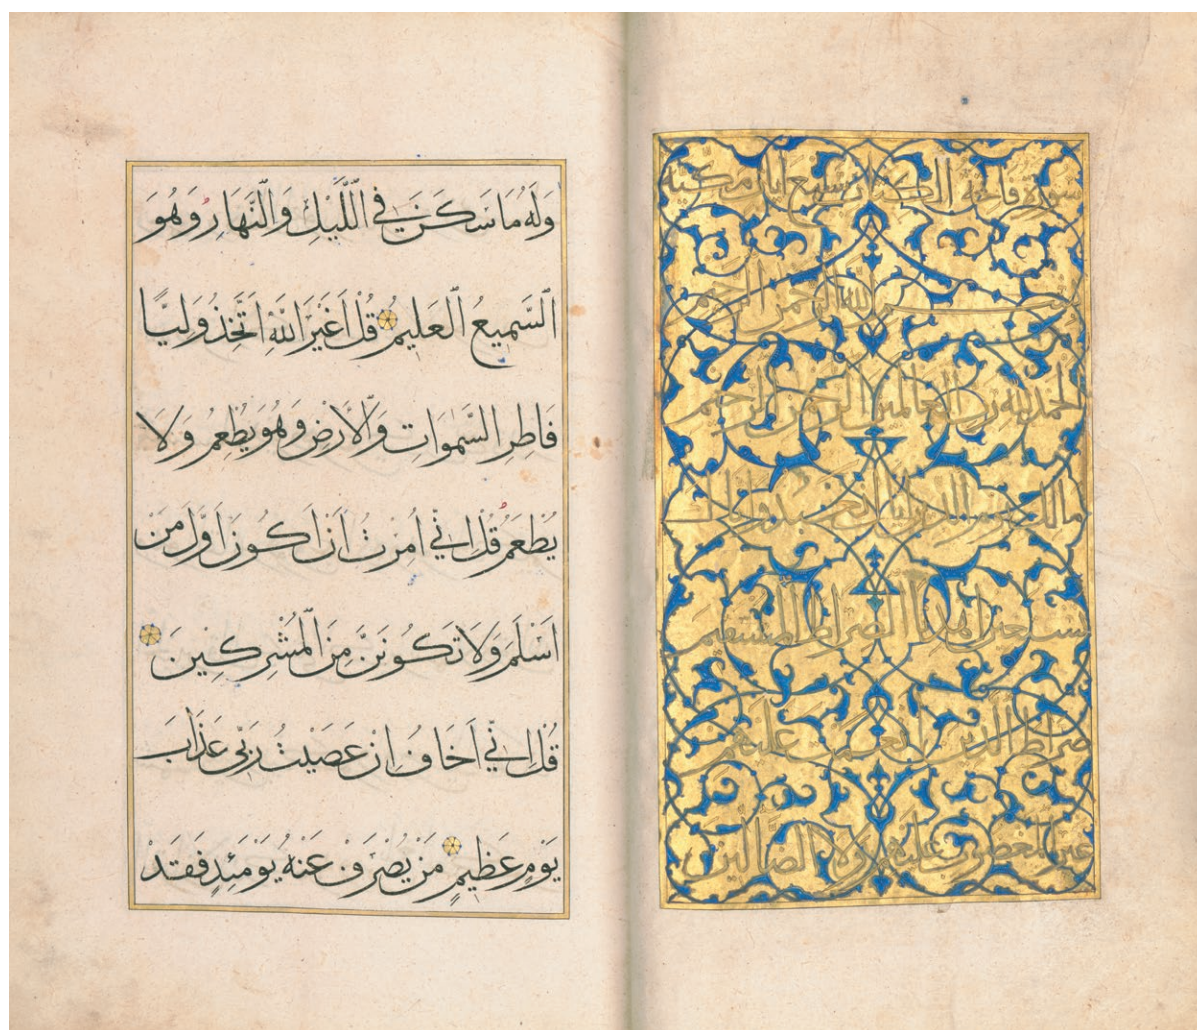 سورة فاتحة الكتاب سبع ايات مكية
بسم الله الرحمن الرحيم
الحمد لله رب العالمين الرحمن الرحيم
مالك يوم الدين اياك نعبد واياك
نستعين اهدنا الصراط المستقيم
صراط الذين انعمت عليهم
غير المغضوب عليهم ولا الضالين
وَلَهُ مَا سَكَنَ فِي اللَّيْلِ وَالنَّهَارِ وَهُوَ
السَّمِيعُ الْعَلِيمُ قُلْ اَغَيْرَ اللّٰهِ اَتَّخِذُ وَلِيًّا
فَاطِرِ السَّمٰوَاتِ وَالْاَرْضِ وَهُوَ يُطْعِمُ وَلَا
يُطْعَمُ قُلْ اِنِّي اُمِرْتُ اَنْ اَكُونَ اَوَّلَ مَنْ
اَسْلَمَ وَلَا تَكُونَنَّ مِنَ الْمُشْرِكِينَ
قُلْ اِنِّي اَخَافُ اِنْ عَصَيْتُ رَبِّي عَذَابَ
يَوْمٍ عَظِيمٍ مَنْ يُصْرَفْ عَنْهُ يَوْمَئِذٍ فَقَدْ